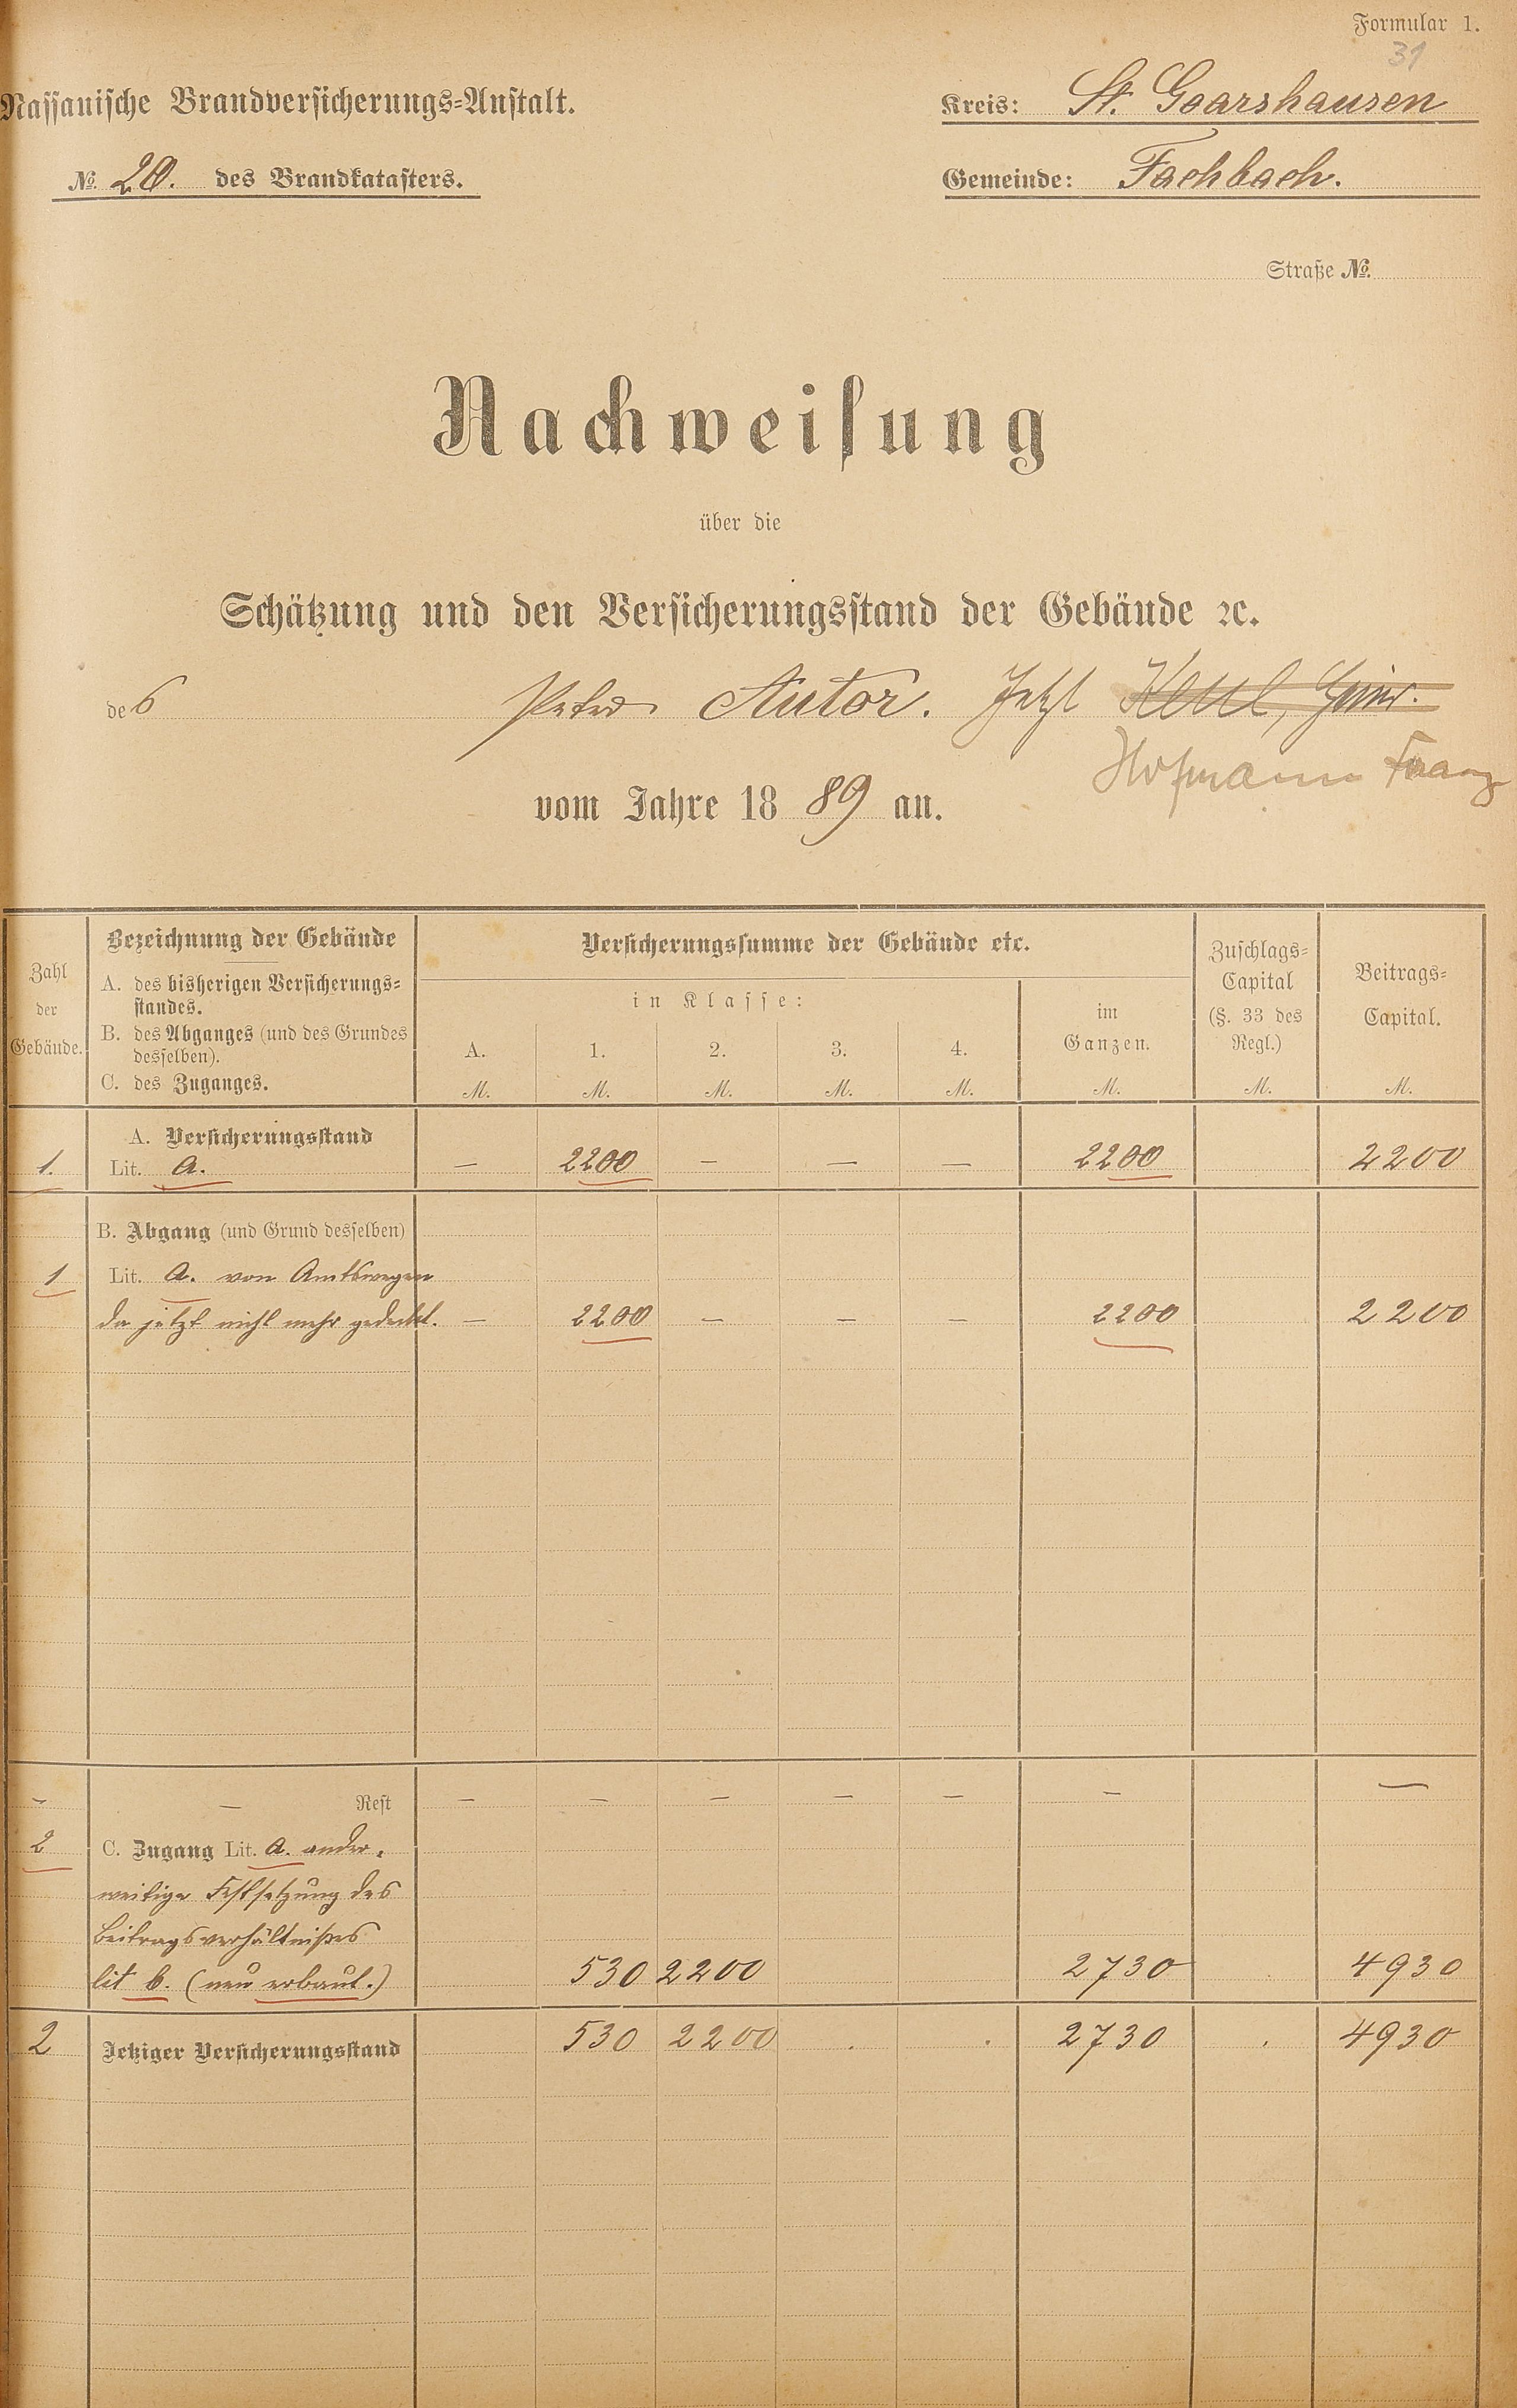 Formular 1.
31
Nassauische Brandversicherungs-Anstalt.
Kreis: St. Goarshausen
No. 20. des Brandkatasters.
Gemeinde: Fachbach.
Straße No.
Nachweisung
über die
Schätzung und den Versicherungsstand der Gebäude ꝛc.
des Peter Autor. Jetzt
Hofmann Franz
vom Jahre 1889 an.
Zahl der Gebäude.
Bezeichnung der Gebäude
A. des bisherigen Versicherungs-
standes.
B. des Abganges (und des Grundes
desselben).
C. des Zuganges.
Versicherungssumme der Gebäude etc.
in Klasse:
A. 1. 2. 3. 4.
im
Ganzen.
Zuschlags-
Capital
(§. 33 des
Regl.)
Beitrags-
Capital.
M. M. M. M. M. M. M. M.
A. Versicherungsstand
1. Lit. a. — 2200 — — — 2200 2200
B. Abgang (und Grund desselben)
1 Lit. a. von Amtswegen
da jetzt nicht mehr gedeckt. — 2200 — — — 2200 2200
— — Rest — — — — — — —
2 C. Zugang Lit. a. ander-
weitige Festsetzung des
Beitragsverhältnißes
lit b. (neu erbaut.) 530 2200 2730 4930
2 Jetziger Versicherungsstand 530 2200 . . 2730 . 4930